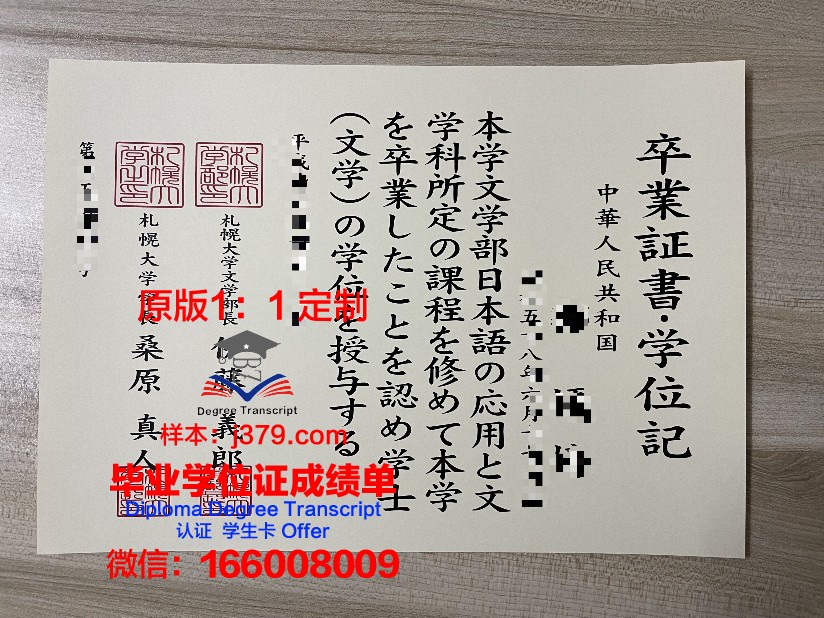 卒業証書・学位記
中華人民共和国
本学文学部日本語の応用と文
学科所定の課程を修めて本学
を卒業したことを認め学士
（文学）の学位を授与する
札幌大学文学部長
佐藤 義郎
札幌大学学長 桑原 真人
原版1：1定制
Degree Transcript
样本：j379.com
毕业学位证成绩单
Diploma Degree Transcript
认证 学生卡 Offer
微信：166008009